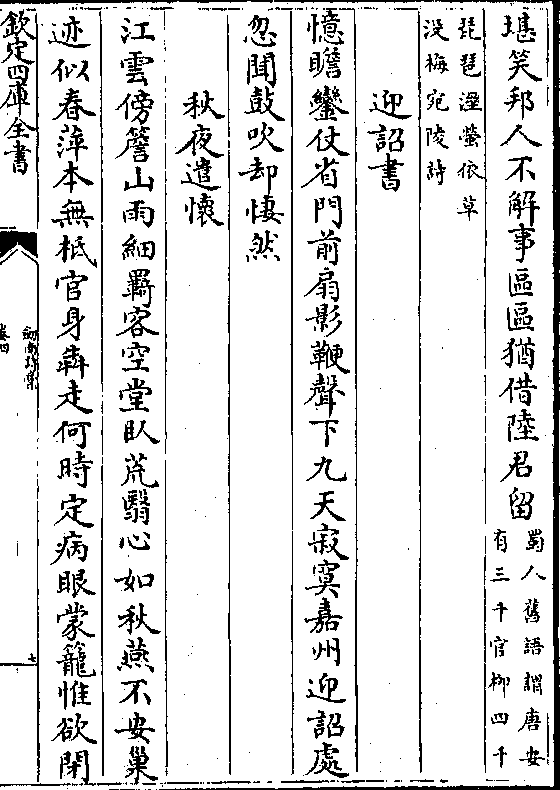 堪笑邦人不解事區區猶借陸君留蜀人舊語謂唐安有三千官柳四千
琵琶湿螢依草
没梅宛陵詩
迎詔書
憶瞻鑾仗省門前扇影鞭聲下九天寂寞嘉州迎詔處
忽聞鼓吹却悽然
秋夜遣懐
江雲傍簷山雨細羇客空堂臥荒翳心如秋燕不安巢
迹似春萍本無柢官身犇走何時定病眼蒙籠惟欲閉
欽定四庫全書
劍南詩稾
卷四
七